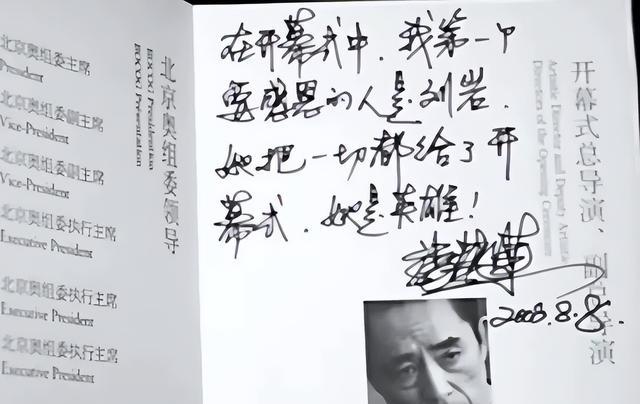 北京奥组委主席
President
北京奥组委副主席
Vice-President
北京奥组委副主席
Vice-President
北京奥组委执行主席
Executive President
北京奥组委执行主席
Executive President
北京奥组委执行主席
Executive President
北京奥组委领导
BOCOG Presidential
在开幕式中，我第一个
要感恩的人是刘岩．
她把一切都给了开
幕式．她是英雄！
2008.8.8.
开幕式总导演、副总导演
Artistic Director and Deputy Artistic
Directors of the Opening Ceremony